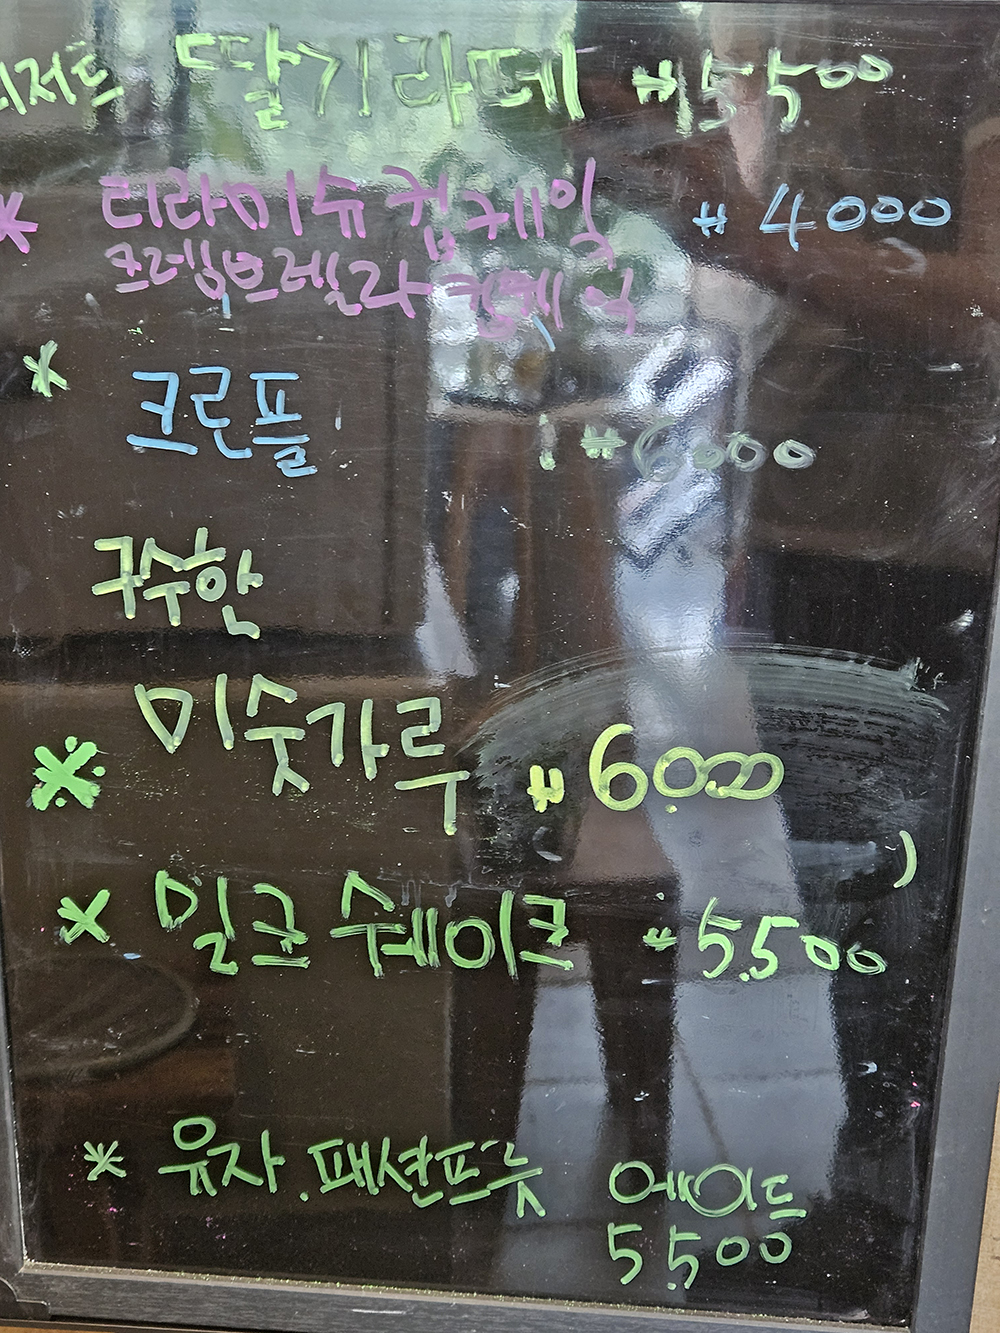 디저트 딸기라떼 # 5500
* 티라미슈 컵케익 # 4000
크렘브렐라 컵케익
* 크로플 # 6000
구수한
※ 미숫가루 # 6.000
* 밀크 쉐이크 # 5.500
* 유자.패션프룻 에이드
5.500